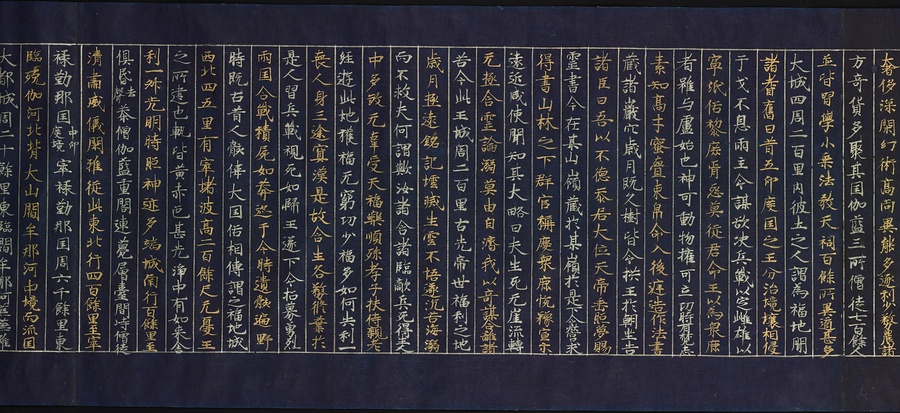 奢侈深閑幻術高尚異能多逐利少務農諸
方奇貨多聚其国伽藍三所僧徒七百餘人
並皆習學小乗法教天祠百餘所異道甚多
大城四周二百里内彼土之人謂為福地聞
諸耆舊曰昔五印度国之王分治境壤相侵
于戈不息兩主合謀欲决兵戰以定雌雄以
寧氓俗黎庶胥怨莫從君命王以為衆庶
者難与慮始也神可動物權可立功時有梵志
素知高才密賫束帛命入後庭造作法書
藏諸巖穴歲月既久樹皆合拱王於朝坐告
諸臣曰吾以不德忝居大位天帝垂照夢賜
靈書今在某山嶺藏於某嶺於是下令營求
得書山林之下群官稱慶衆庶悅豫宣示
遠近咸使聞知其大略曰夫生死元崖流轉
元極含靈淪溺莫由自濟我以奇謀令離諸
苦今此王城周二百里古先帝世福利之地
歲月極遠銘記堙滅生靈不悟遂沉苦海溺
而不救夫何謂歟汝諸含諸臨敵兵死得生人
中多殺元辜受天福樂順孫孝子扶侍親老
經遊此地獲福无窮功少福多如何失利一
喪人身三途冥漠是故含生各務修業於
是人習兵戰視死如歸王遂下令招募勇烈
兩国合戰積屍如莽迄于今時遺骸遍野
時既古昔人骸偉大国俗相傳謂之福地城
西北四五里有窣堵波高二百餘尺无憂王
之所建也甎皆黃赤色甚光浄中有如来舍
利一升光明時照神迹多端城南行百餘里至
俱昏去聲荼僧伽藍重閣連甍層臺間峙僧徒
清肅威儀閑雅從此東北行四百餘里至窣
祿勤那国中印度境窣祿勤那国周六千餘里東
臨殑伽河北背大山閻牟那河中境而流国
大都城周二十餘里東臨閻牟那河荒蕪雖